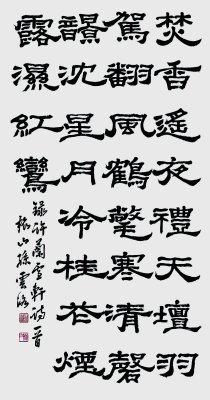 焚香遙夜禮天壇羽
駕翻風鶴氅寒清磬
韻沈星月冷桂花煙
露濕紅鸞
錄許蘭雪軒詩一首
山孫雲